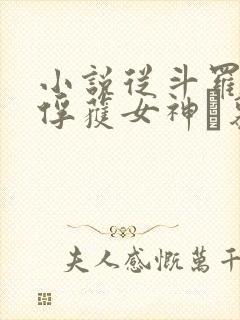 小說從斗羅
俘蔭女神
夫人感慨萬千